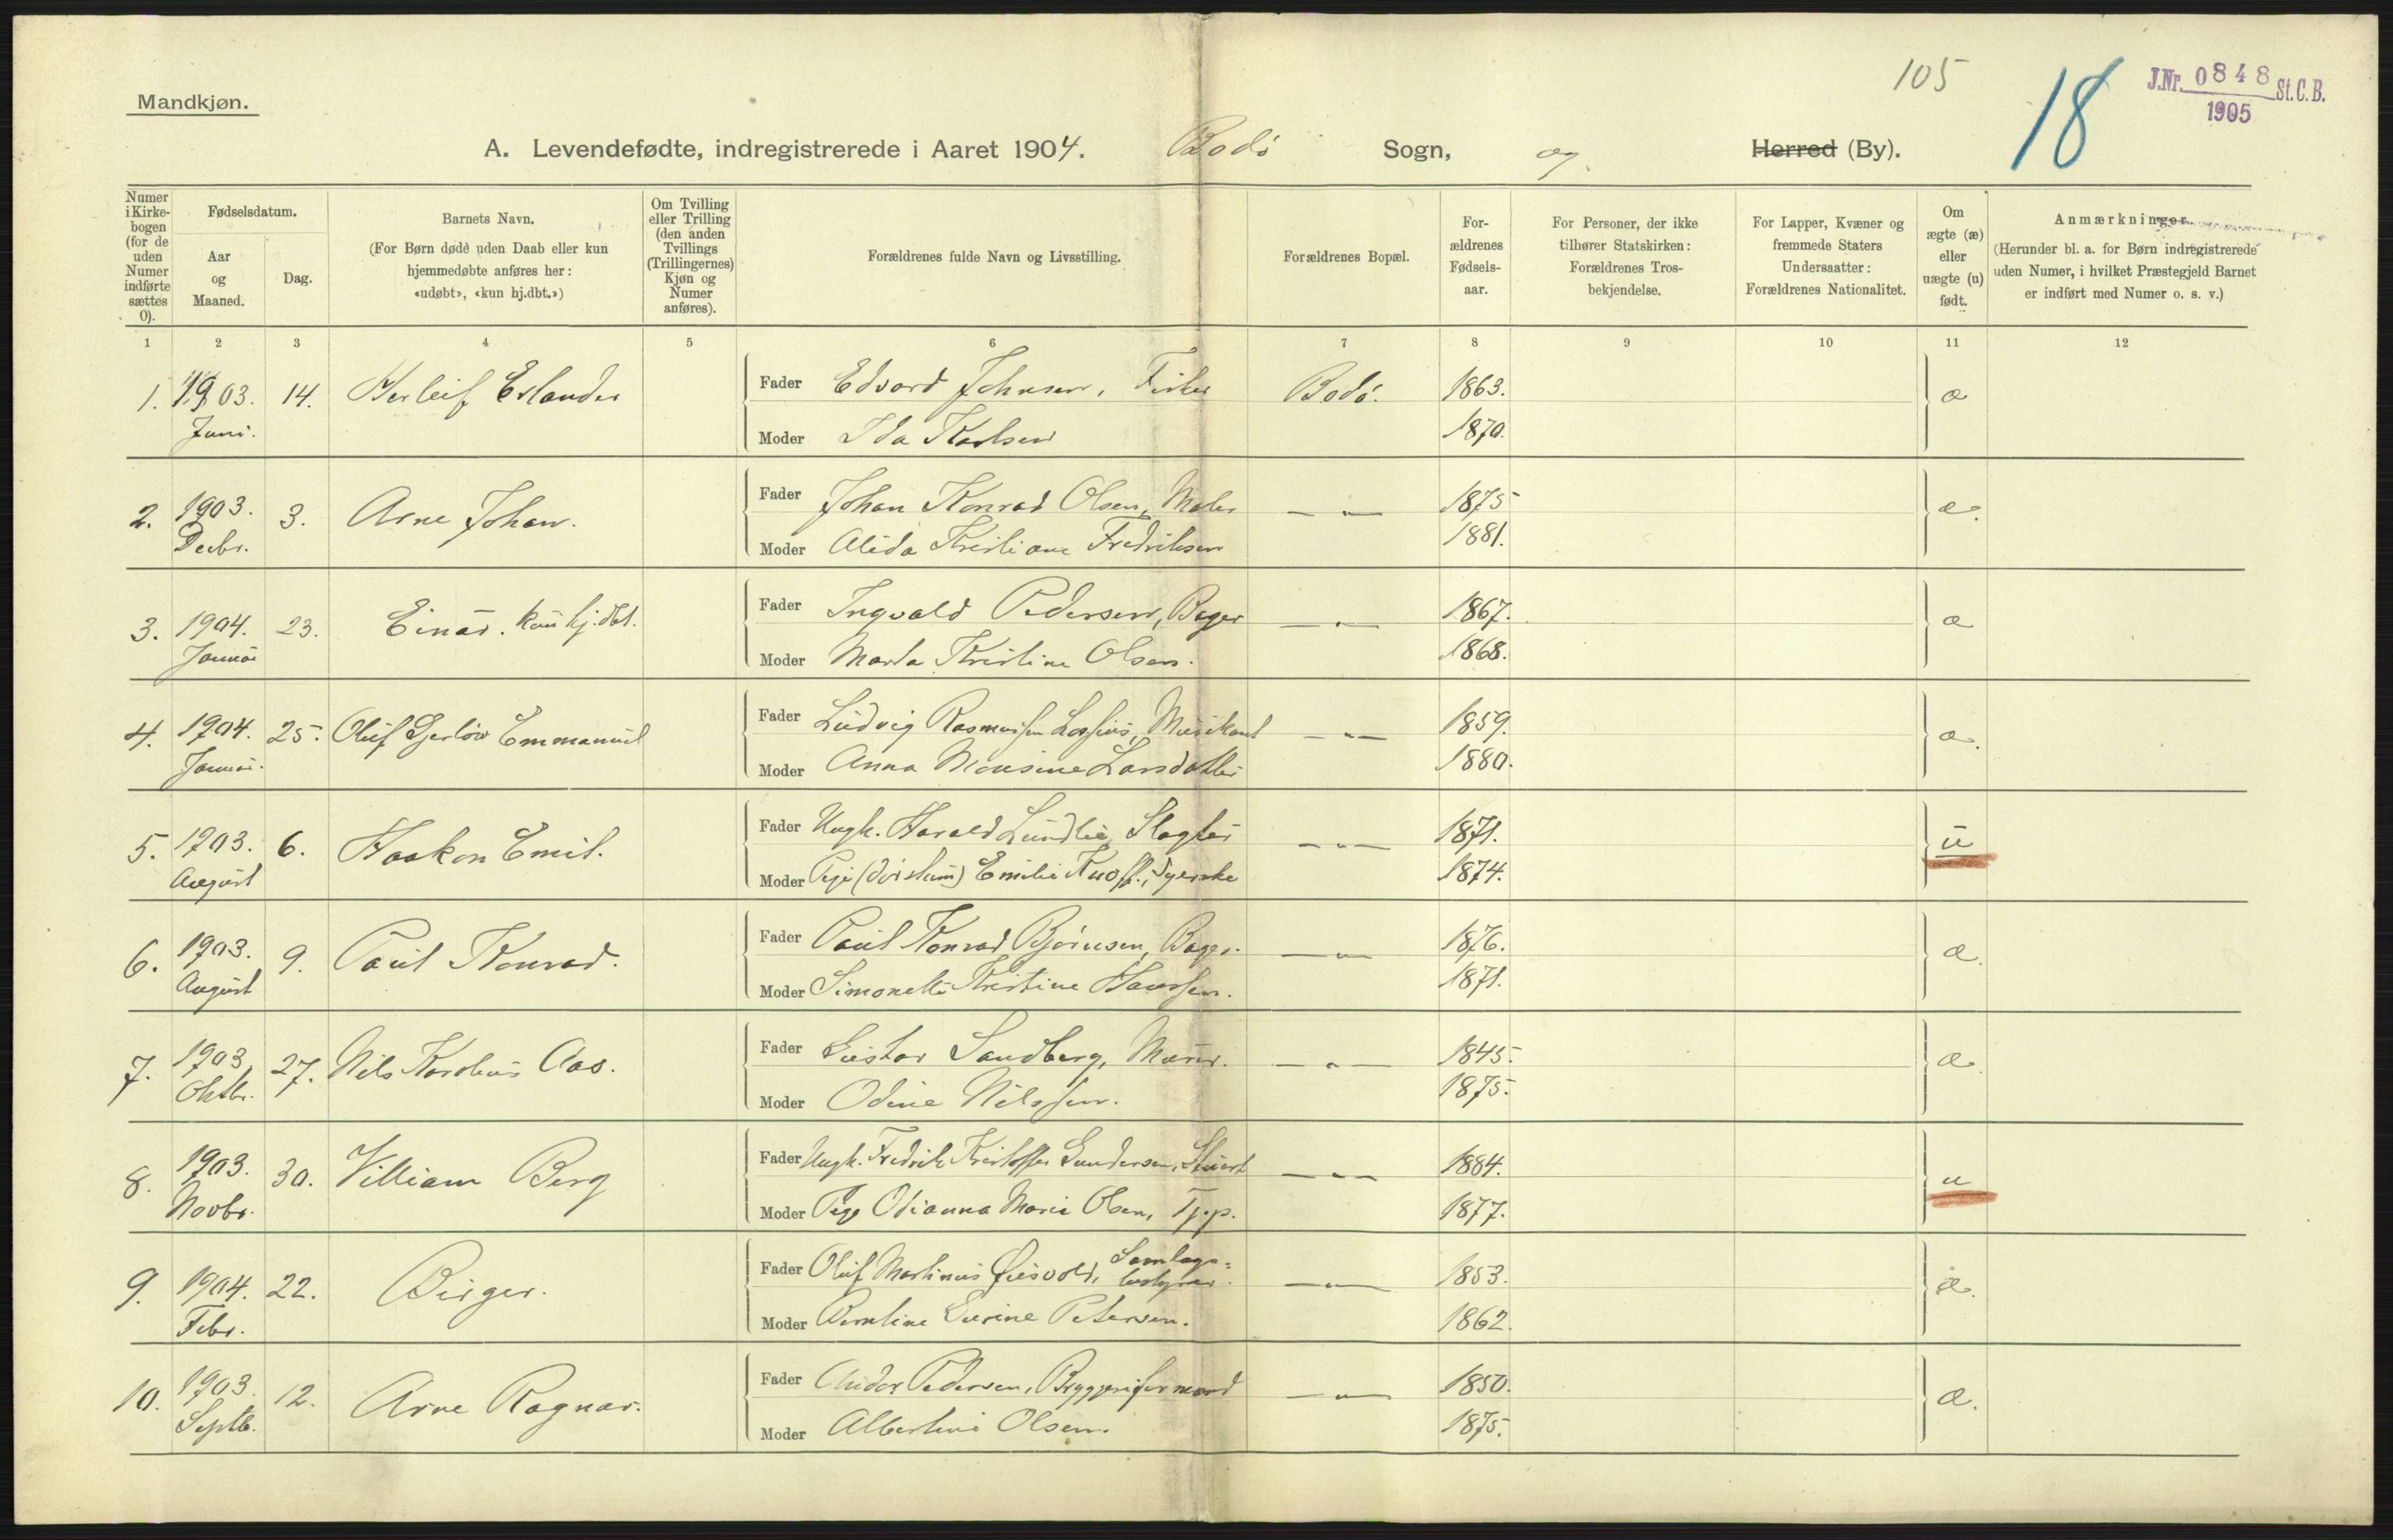 105
18
J.Nr. 0848 St.C.B.
1905
Mandkjøn.
A. Levendefødte, indregistrerede i Aaret 1904. Bodø Sogn, og Herred (By).
Numer i Kirkebogen (for de uden Numer indførte sættes 0).
Fødselsdatum.
Aar og Maaned.
Dag.
Barnets Navn.
(For Børn døde uden Daab eller kun hjemmedøbte anføres her: «udøbt», «kun hj.dbt.»)
Om Tvilling eller Trilling (den anden Tvillings (Trillingernes) Kjøn og Numer anføres).
Forældrenes fulde Navn og Livsstilling.
Forældrenes Bopæl.
Forældrenes Fødselsaar.
For Personer, der ikke tilhører Statskirken: Forældrenes Trosbekjendelse.
For Lapper, Kvæner og fremmede Staters Undersaatter: Forældrenes Nationalitet.
Om ægte (æ) eller uægte (u) født.
Anmærkninger.
(Herunder bl. a. for Børn indregistrerede uden Numer, i hvilket Præstegjeld Barnet er indført med Numer o. s. v.)
1 2 3 4 5 6 7 8 9 10 11 12
1. 1903. 14. Herleif Erlander Fader Edvard Johnsen, Fisker Bodø. 1863. æ
Juni. Moder Ida Karlsen 1870.
2. 1903. 3. Arne Johan. Fader Johan Konrad Olsen, Maler — " — 1875 æ.
Decbr. Moder Alida Kristiane Fredriksen 1881.
3. 1904. 23. Einar. kun hj.dbt. Fader Ingvald Pedersen, Bager — " — 1867. æ
Januar Moder Marta Kristine Olsen. 1868.
4. 1904. 25. Oluf Gjerløw Emmanuel Fader Ludvig Rasmussen Lossius, Musikant — " — 1859. æ.
Januar. Moder Anna Monsine Larsdatter 1880.
5. 1903. 6. Haakon Emil. Fader Ungk. Harald Lundlie, Slagter — " — 1871. u
August Moder Pige Emilie Knoff, Syerske 1874.
6. 1903. 9. Paul Konrad. Fader Paul Konrad Bjørnsen, Bager. — " — 1876. æ.
August Moder Simonette Kristine Hanssen. 1871.
7. 1903 27. Nils Kornelius Aas. Fader Gustav Sandberg, Murer. — " — 1845. æ.
Oktbr. Moder Odine Nilssen. 1875.
8. 1903. 30. William Berg Fader Ungk. Fredrik Kristoffer Gundersen, Stuert — " — 1884. u
Novbr. Moder Pige Odianna Marie Olsen, Tj.p. 1877.
9. 1904. 22. Birger. Fader Oluf Martinus Øiesvold, Samlagsbestyrer. — " — 1853. æ.
Febr. Moder Berntine Eurine Petersen. 1862.
10. 1903. 12. Arne Ragnar. Fader Andor Pedersen, Bryggeriformand — " — 1850. æ.
Septb. Moder Albertine Olsen. 1875.